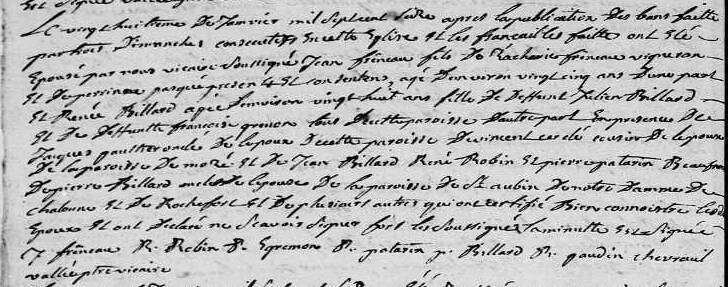 Le vingt huitieme De Janvier mil Sept cent Seize apres la publication Des bans faitte
par trois Dimanches consecutifs En cette Eglise et les fiançailles faitte ont Eté
Epousé par nous vicaire Soussigné Jean frêneau fils De Zacharie frêneau vigneron
Et De perrinne pasqué presents et consentens, agé D'environ vingt cinq ans D'une part
Et Renée Billard agee D'environ vingt huit ans fille De Deffunt Julien Billard
Et De Deffunte françoise grenon tous De cette paroisse D'autre part En presence De
Jacques gaultier oncle De l'epoux De cette paroisse De vincent cousin De l'epoux
De la paroisse De mozé Et De Jean Billard René Robin Et pierre patarin
De pierre Billard oncle De l'epouse De la paroisse De St aubin De notre Damme De
chalonne Et De Rochefort Et De plusieurs autres qui ont certifié Bien connoistre
Epoux Et ont Declaré ne Scavoir Signer fors les Soussignés la minutte Est Signée
J frêneau R. Robin P. Egremon P. patarin p. Billard R. gaudin chevreuil
vallée ptre vicaire